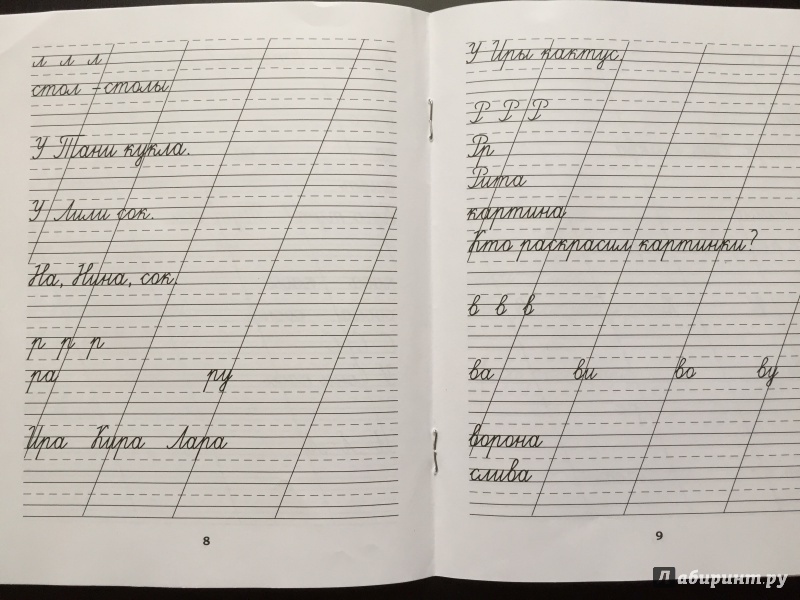 л л л
стол – столы
У Тани кукла.
У Лили сок.
На, Нина, сок.
р р р
ра ру
Ира Кира Лара
8
У Иры кактус.
Р Р Р
Рр
Рита
картина
Кто раскрасил картинки?
в в в
ва ви во ву
ворона
слива
9
Лабиринт.ру